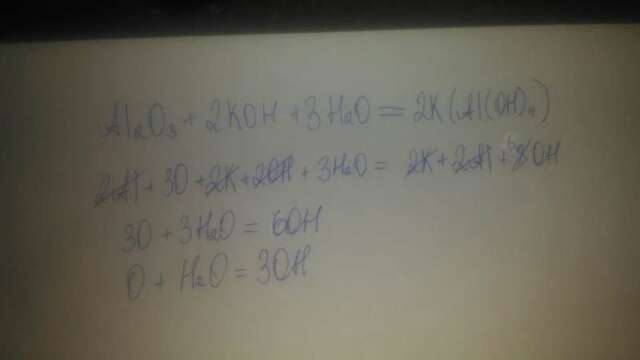 Al₂O₃ + 2KOH + 3H₂O = 2K(Al(OH)₄)
2Al + 3O + 2K + 2OH + 3H₂O = 2K + 2Al + 6OH
3O + 3H₂O = 6OH
O + H₂O = 3OH